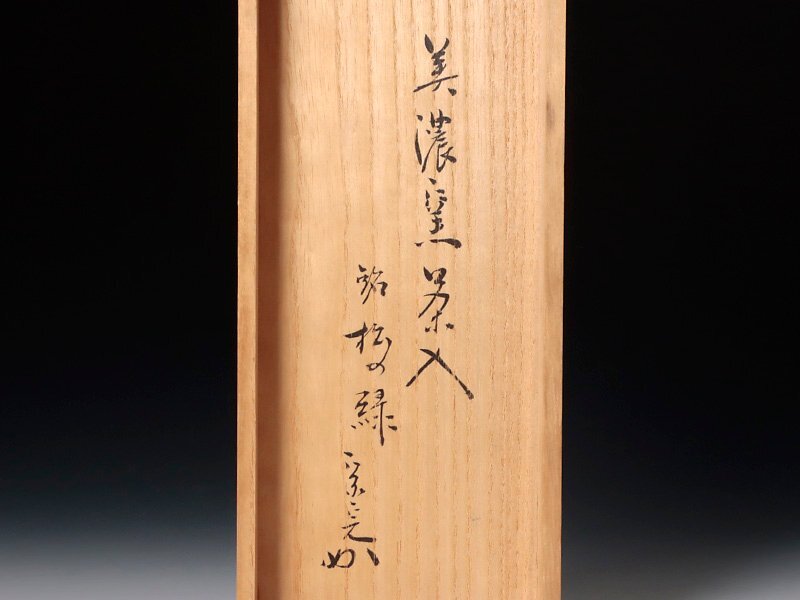 美濃窯茶入
銘 松の緑
宗完